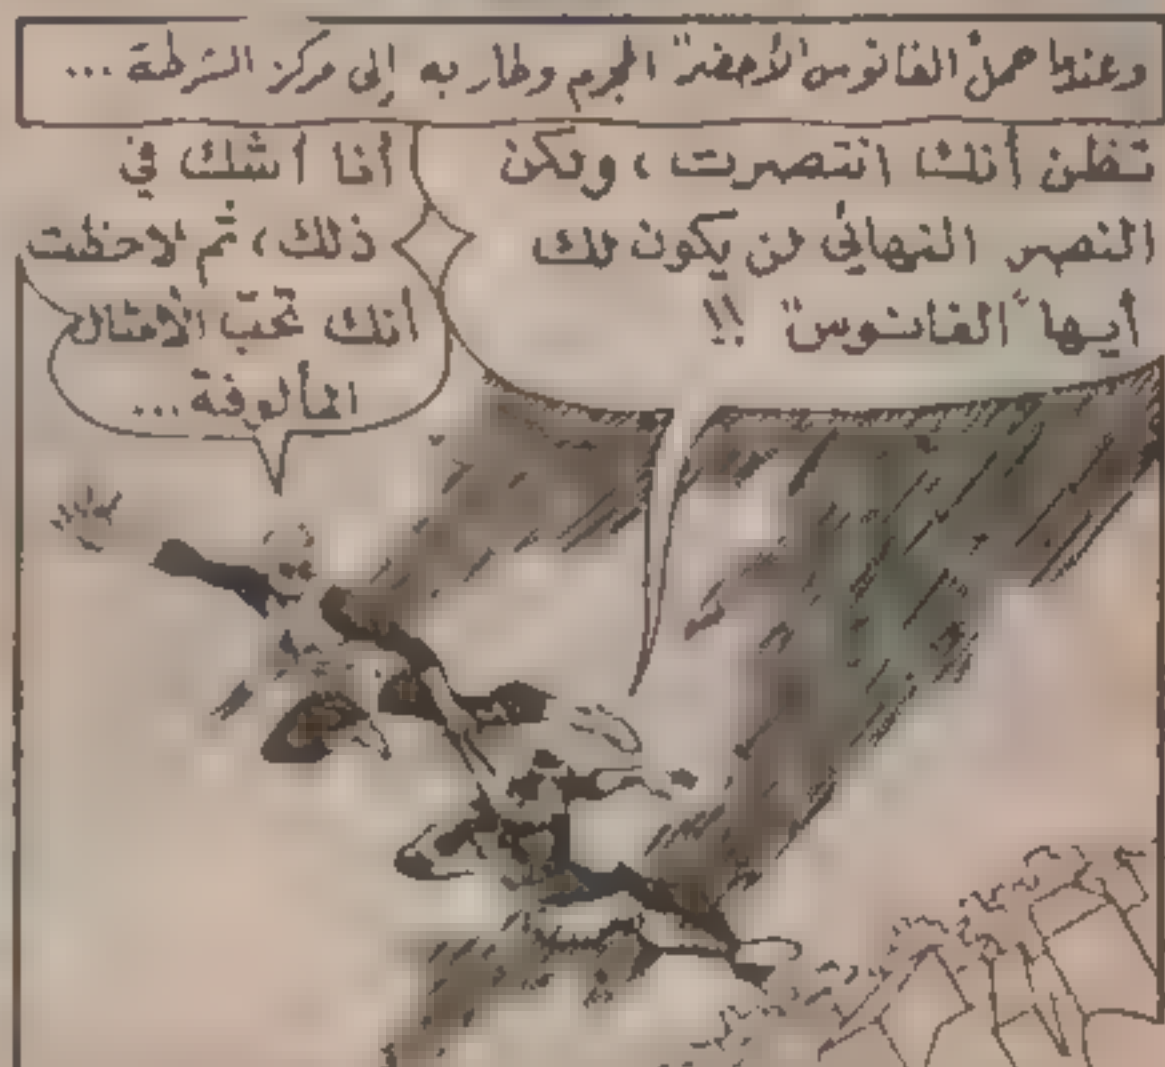 وعندما حمل "الفانوس الأخضر" المجرم وطار به إلى مركز الشرطة ...
تظن أنك انتصرت ، ولكن
النصر النهائي لن يكون لك
أيها "الفانوس" !!
أنا أشك في
ذلك ، ثم لاحظت
أنك تحبّ الأمثال
المألوفة ...